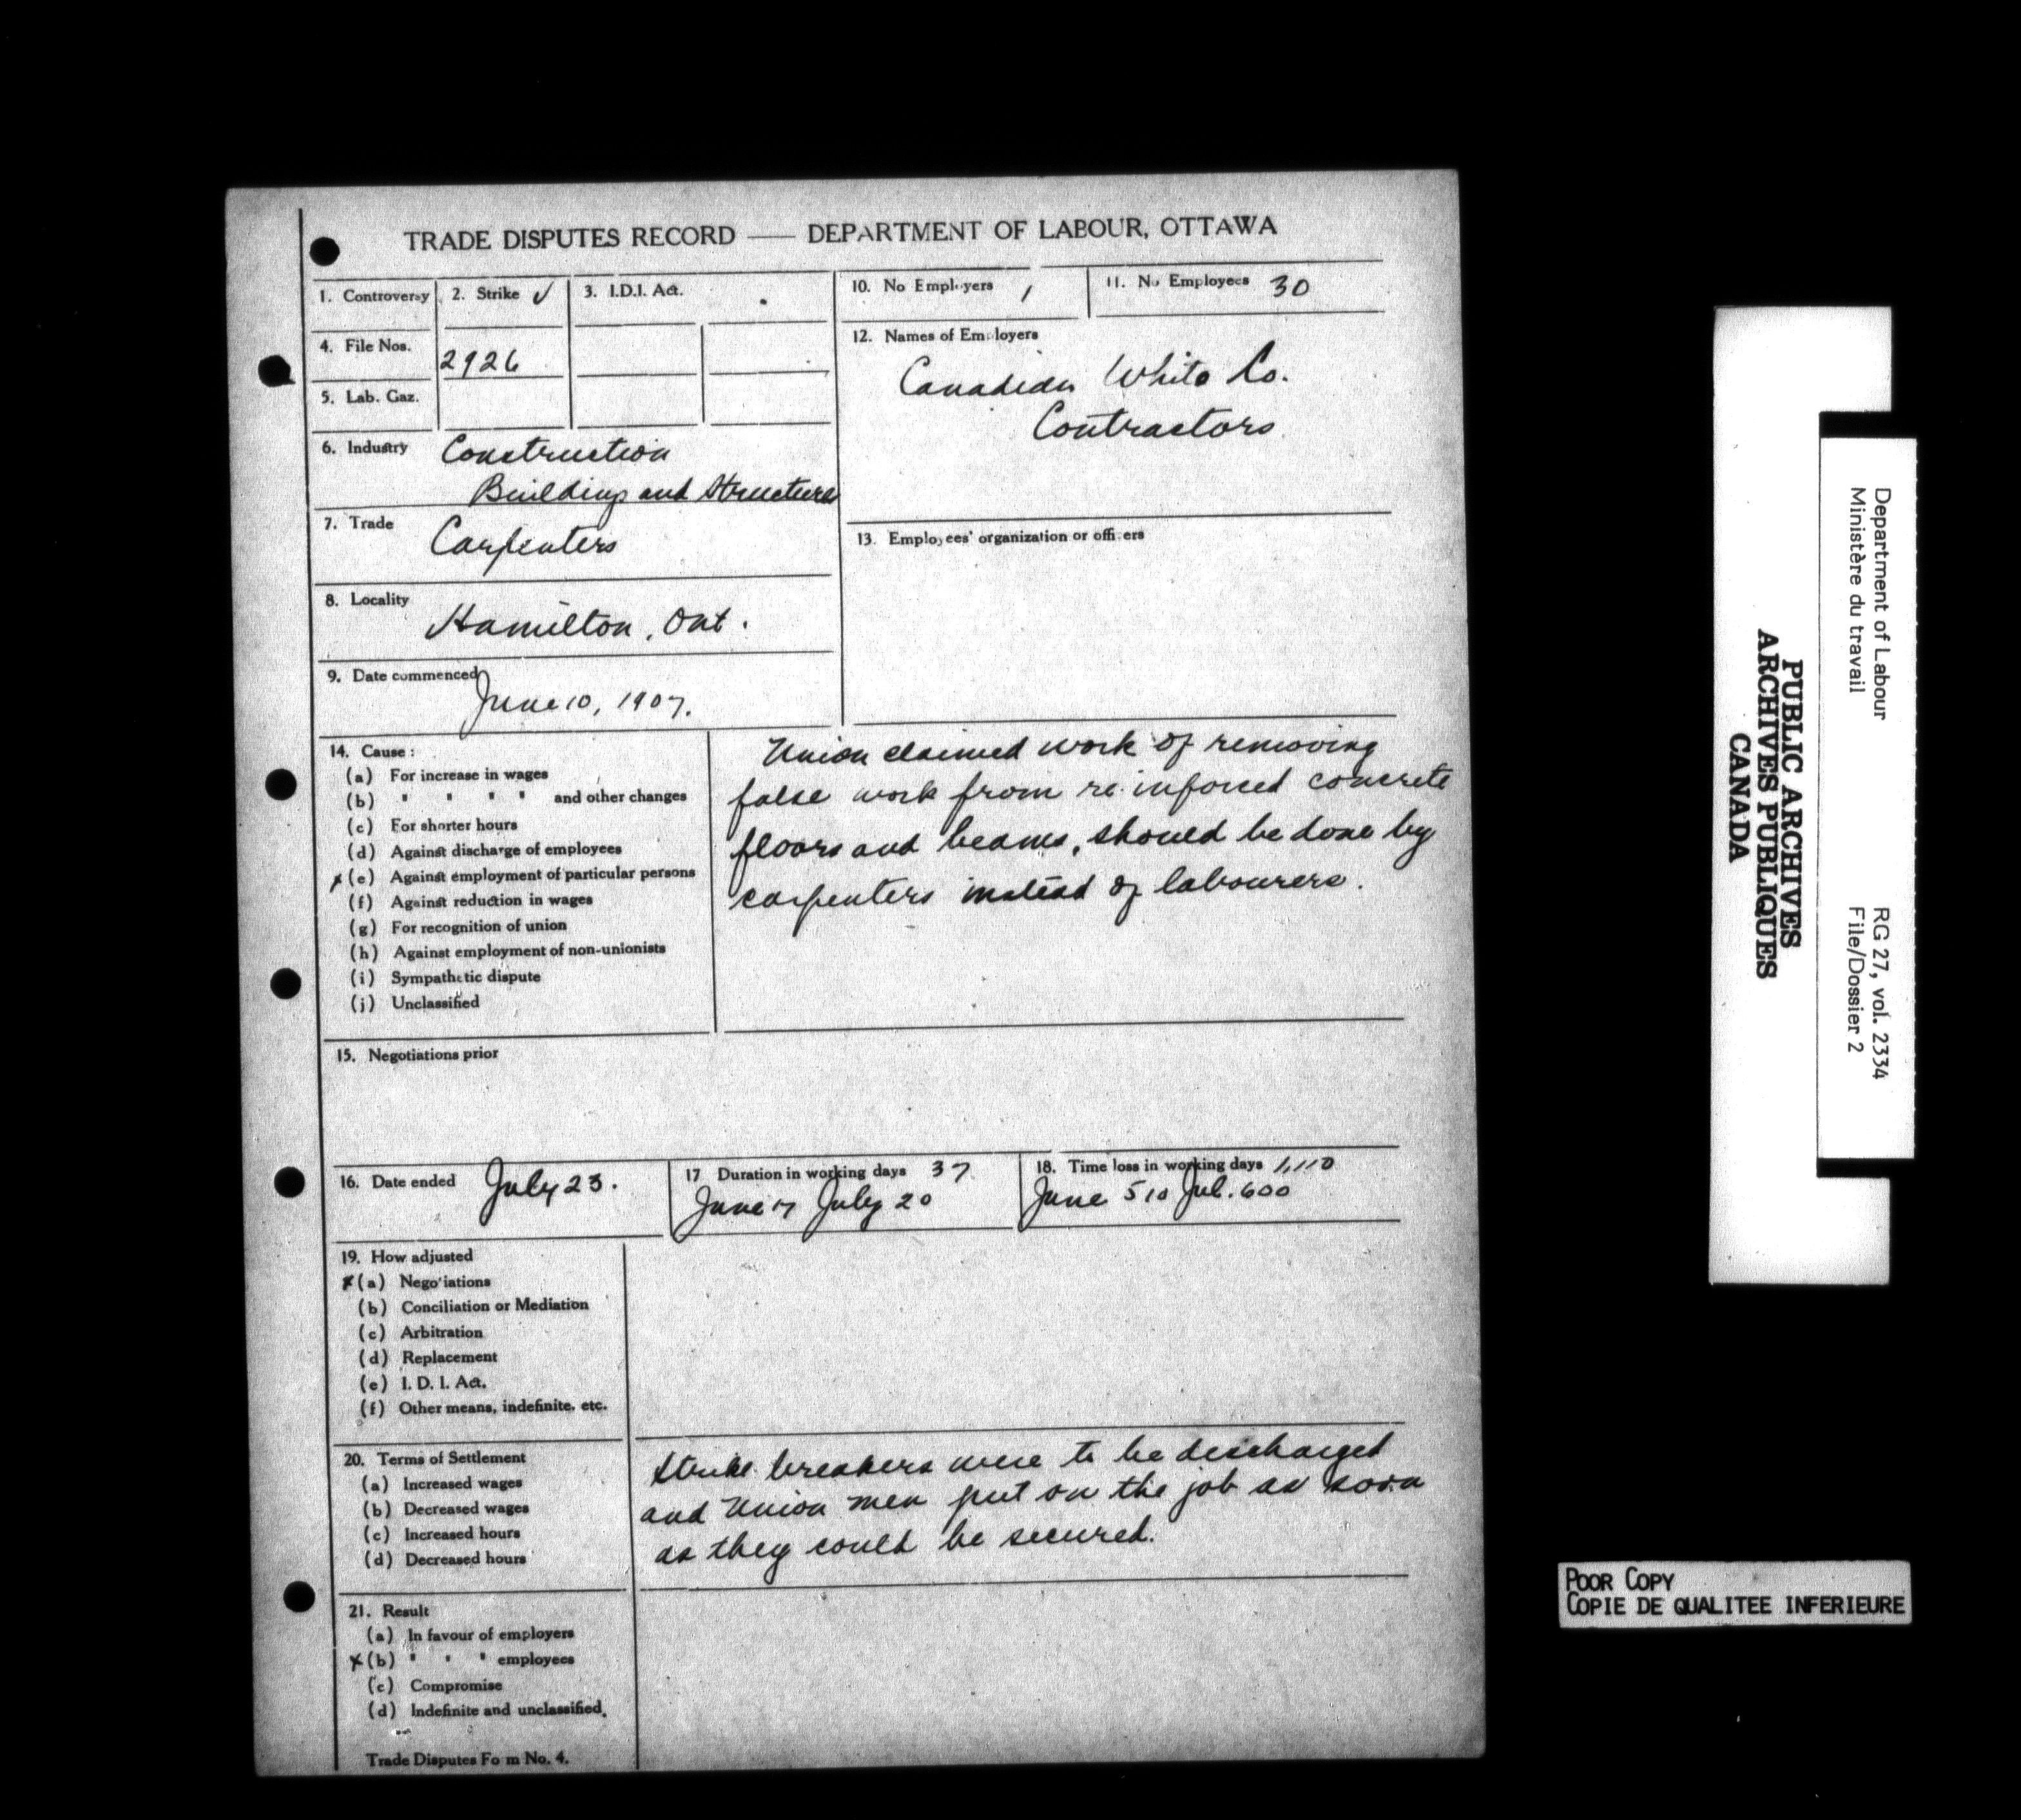 TRADE DISPUTES RECORD — DEPARTMENT OF LABOUR, OTTAWA
1. Controversy
2. Strike ✓
3. I.D.I. Act.
4. File Nos. 2926
5. Lab. Gaz.
6. Industry Construction
Buildings and Structures
7. Trade Carpenters
8. Locality Hamilton, Ont.
9. Date commenced June 10, 1907.
10. No Employers 1
11. No Employees 30
12. Names of Employers
Canadian White Co.
Contractors
13. Employees' organization or officers
14. Cause :
(a) For increase in wages
(b) " " " " and other changes
(c) For shorter hours
(d) Against discharge of employees
x (e) Against employment of particular persons
(f) Against reduction in wages
(g) For recognition of union
(h) Against employment of non-unionists
(i) Sympathetic dispute
(j) Unclassified
Union claimed work of removing
false work from re-inforced concrete
floors and beams, should be done by
carpenters instead of labourers.
15. Negotiations prior
16. Date ended July 23.
17 Duration in working days 37
June 17 July 20
18. Time loss in working days 1,110
June 510 Jul. 600
19. How adjusted
x (a) Negotiations
(b) Conciliation or Mediation
(c) Arbitration
(d) Replacement
(e) I. D. I. Act.
(f) Other means, indefinite, etc.
20. Terms of Settlement
(a) Increased wages
(b) Decreased wages
(c) Increased hours
(d) Decreased hours
Strike breakers were to be discharged
and Union men put on the job as soon
as they could be secured.
21. Result
(a) In favour of employers
x (b) " " " employees
(c) Compromise
(d) Indefinite and unclassified.
Trade Disputes Fo m No. 4.
Department of Labour
Ministère du travail
RG 27, vol. 2334
File/Dossier 2
PUBLIC ARCHIVES
ARCHIVES PUBLIQUES
CANADA
POOR COPY
COPIE DE QUALITEE INFERIEURE